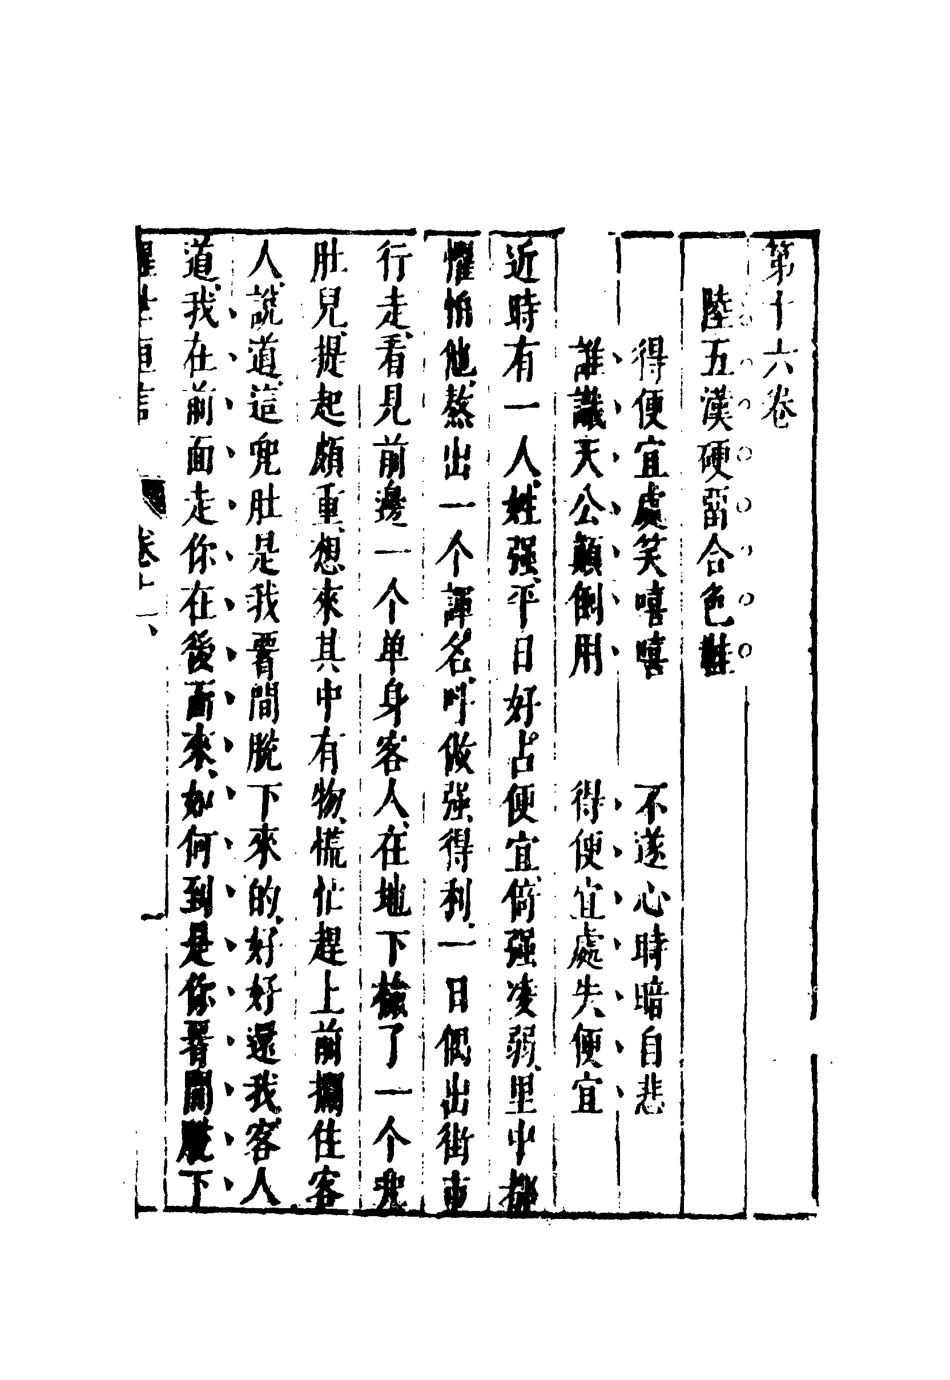 第十六卷
陸五漢硬留合色鞋
得便宜處笑嘻嘻　不遂心時暗自悲
誰識天公顛倒用　得便宜處失便宜
近時有一人、姓强、平日好占便宜、倚强凌弱、里中都
懼怕他、熬出一个諢名、叫做强得利、一日偶出街市
行走、看見前邊一个单身客人、在地下檢了一个兜
肚兒、提起頗重、想來其中有物、慌忙趕上前攔住客
人、說道、這兜肚是我腰間脫下來的、好好還我、客人
道、我在前面走你在後面來、如何到是你腰間脫下
醒世恒言　卷十六　一